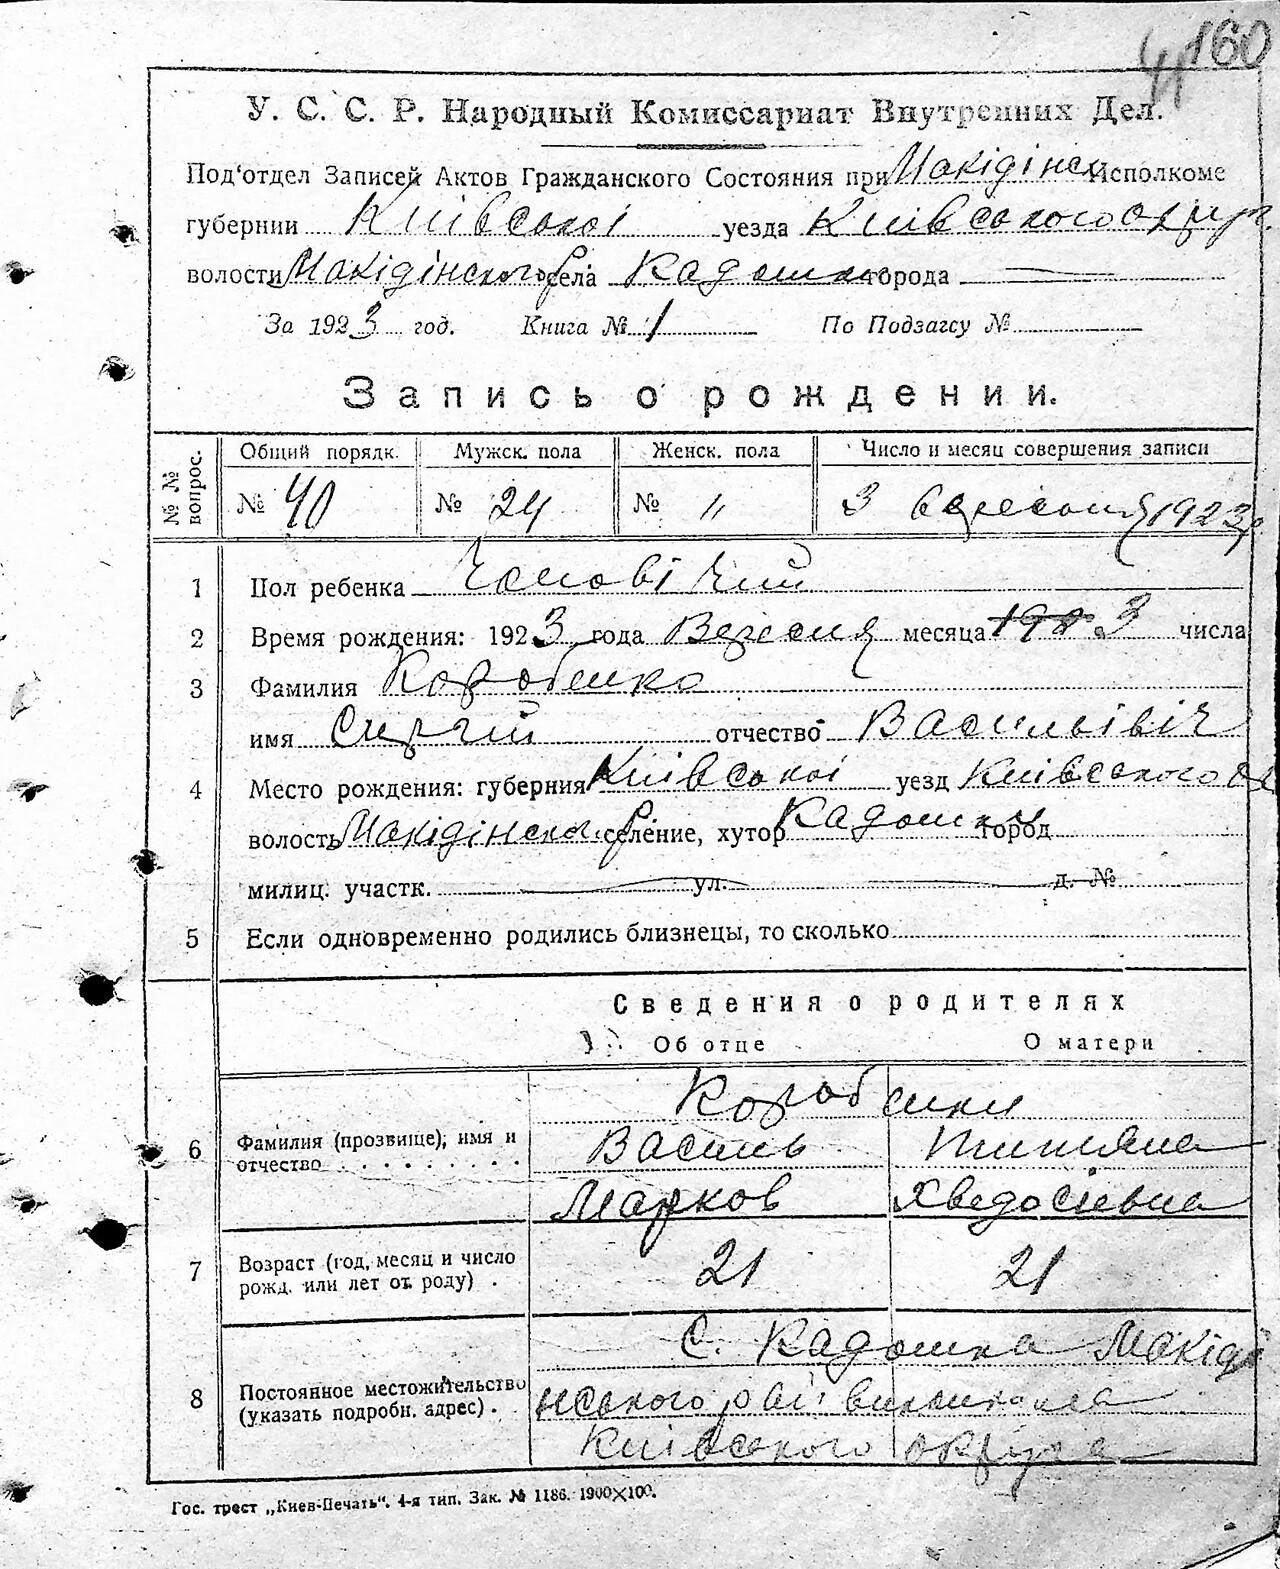 160
У. С. С. Р. Народный Комиссариат Внутренних Дел.
Под'отдел Записей Актов Гражданского Состояния при Макідінск Исполкоме
губернии Київської уезда Київського округ.
волости Макідінского р села Кадомка города
За 1923 год. Книга № 1 По Подзагсу №
Запись о рождении.
№ № вопрос. Общий порядк. Мужск. пола Женск. пола Число и месяц совершения записи
№ 40 № 24 № „ 3 вересня 1923 р
1 Пол ребенка Чоловічий
2 Время рождения: 1923 года Вересня месяца 3 числа
3 Фамилия Коробенко
имя Сиргій отчество Васильівіч
4 Место рождения: губерния Київської уезд Київського ок
волость Макідінског. р селение, хутор Кадомка город
милиц. участк. ул. д. №
5 Если одновременно родились близнецы, то сколько
Сведения о родителях
Об отце О матери
Коробенки
6 Фамилия (прозвище), имя и Василь Титяна
отчество . . . . . . . . Марков Хведосієвна
7 Возраст (год, месяц и число
рожд. или лет от роду) . 21 21
С. Кадомка Макіді
8 Постоянное местожительство
(указать подробн. адрес) . нського рай виконкома
Київского округа
Гос. трест „Киев-Печать". 4-я тип. Зак. № 1186. 1900×100.